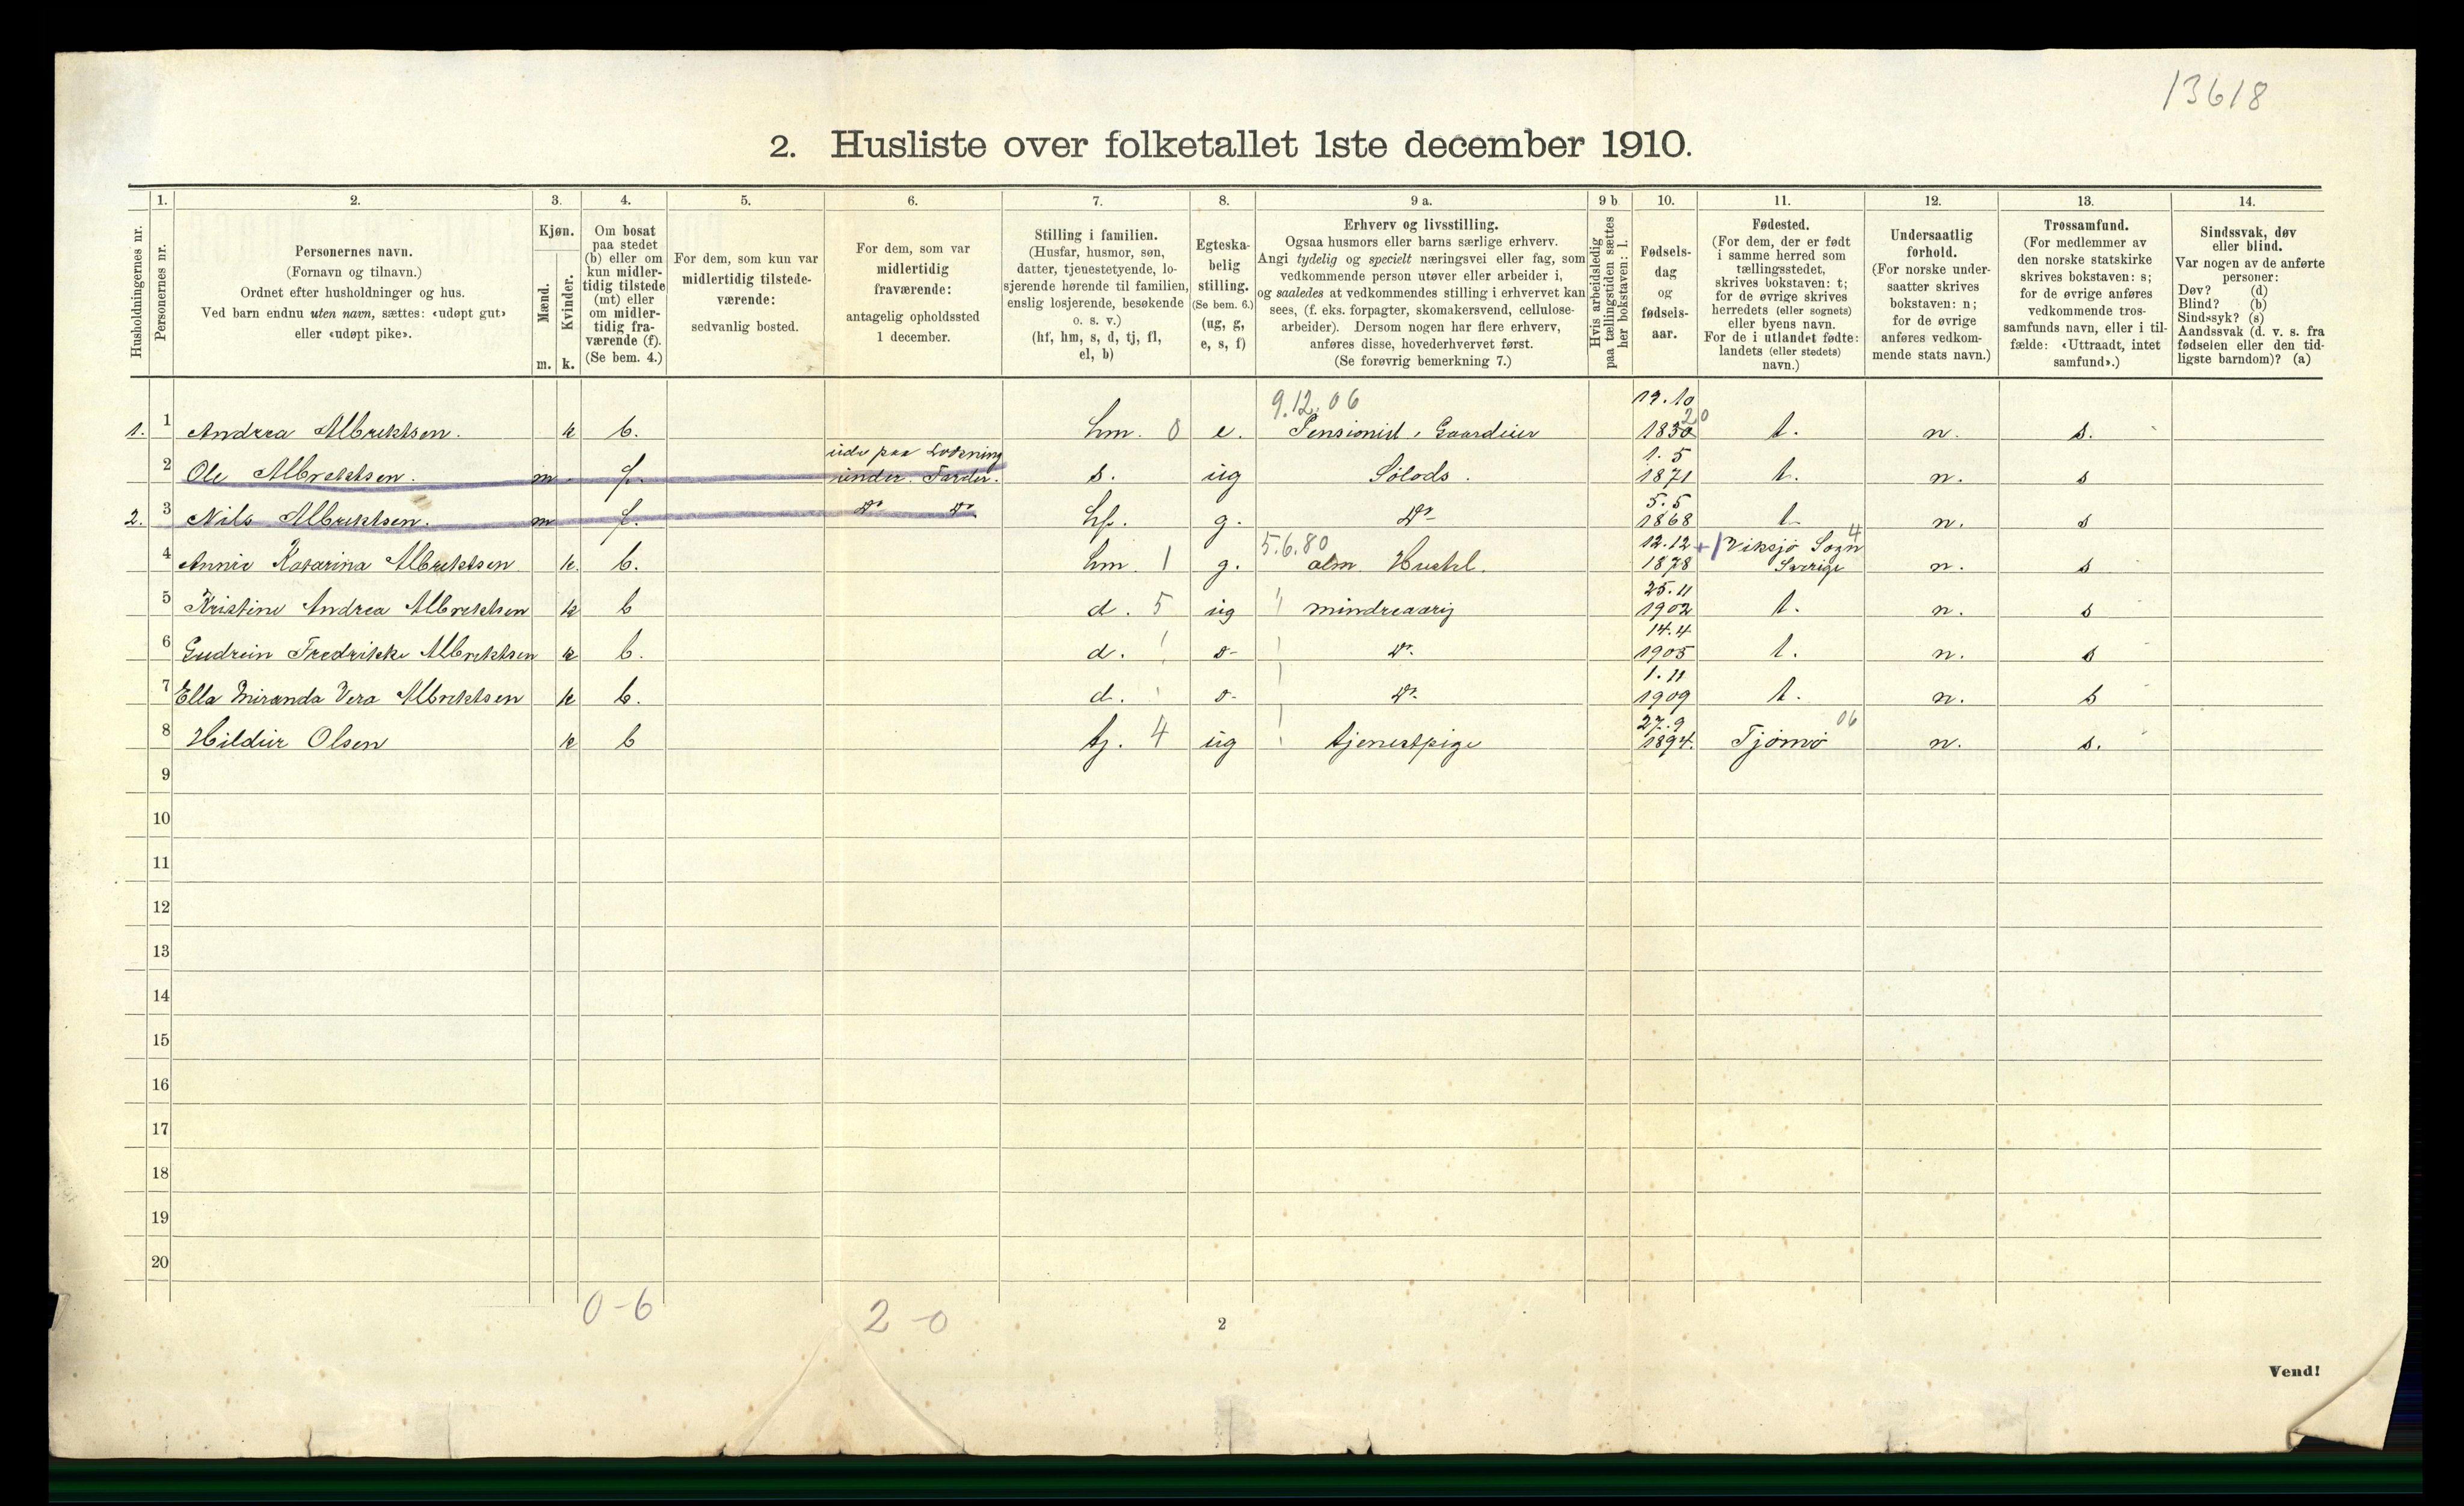 13618
2. Husliste over folketallet 1ste december 1910.
Husholdningernes nr.
1. Personernes nr.
2. Personernes navn.
(Fornavn og tilnavn.)
Ordnet efter husholdninger og hus.
Ved barn endnu uten navn, sættes: «udøpt gut»
eller «udøpt pike».
3. Kjøn.
Mænd. m.
Kvinder. k.
4. Om bosat
paa stedet
(b) eller om
kun midler-
tidig tilstede
(mt) eller
om midler-
tidig fra-
værende (f).
(Se bem. 4.)
5. For dem, som kun var
midlertidig tilstede-
værende:
sedvanlig bosted.
6. For dem, som var
midlertidig
fraværende:
antagelig opholdssted
1 december.
7. Stilling i familien.
(Husfar, husmor, søn,
datter, tjenestetyende, lo-
sjerende hørende til familien,
enslig losjerende, besøkende
o. s. v.)
(hf, hm, s, d, tj, fl,
el, b)
8. Egteska-
belig
stilling.
(Se bem. 6.)
(ug, g,
e, s, f)
9 a. Erhverv og livsstilling.
Ogsaa husmors eller barns særlige erhverv.
Angi tydelig og specielt næringsvei eller fag, som
vedkommende person utøver eller arbeider i,
og saaledes at vedkommendes stilling i erhvervet kan
sees, (f. eks. forpagter, skomakersvend, cellulose-
arbeider). Dersom nogen har flere erhverv,
anføres disse, hovederhvervet først.
(Se forøvrig bemerkning 7.)
9 b. Hvis arbeidsledig
paa tællingstiden sættes
her bokstaven: l.
10. Fødsels-
dag
og
fødsels-
aar.
11. Fødested.
(For dem, der er født
i samme herred som
tællingsstedet,
skrives bokstaven: t;
for de øvrige skrives
herredets (eller sognets)
eller byens navn.
For de i utlandet fødte:
landets (eller stedets)
navn.)
12. Undersaatlig
forhold.
(For norske under-
saatter skrives
bokstaven: n;
for de øvrige
anføres vedkom-
mende stats navn.)
13. Trossamfund.
(For medlemmer av
den norske statskirke
skrives bokstaven: s;
for de øvrige anføres
vedkommende tros-
samfunds navn, eller i til-
fælde: «Uttraadt, intet
samfund».)
14. Sindssvak, døv
eller blind.
Var nogen av de anførte
personer:
Døv? (d)
Blind? (b)
Sindssyk? (s)
Aandssvak (d. v. s. fra
fødselen eller den tid-
ligste barndom)? (a)
9.12.06
1. 1 Andrea Albrektsen. k b. hm. 0 e. Pensionist, Gaardeier 1830 20 t. n. s.
ude paa Losning 1.5
2 Ole Albrektsen. m f. under Færder. s. ug Sølods. 1871 t. n. s
5.5
2. 3 Nils Albrektsen. m f. Do Do hf. g. Do 1868 t. n. s
5.6.80 12.12 + Viksjö Sogn 4
4 Annie Katarina Albrektsen k. b. hm. 1 g. alm. Hushl. 1878 Sverige n. s
25.11
5 Kristine Andrea Albrektsen k b d. 5 ug mindreaarig 1902 t. n. s
14.4
6 Gudrun Fredrikke Albrektsen k b. d. Do. 1905 t. n. s
1.11
7 Ella Miranda Vera Albrektsen k b. d. Do. 1909 t. n. s
27.9 06
8 Hildur Olsen k b tj. 4 ug tjenestpige 1894. Tjømø n. s.
9
10
11
12
13
14
15
16
17
18
19
20
0-6 2-0
2
Vend!